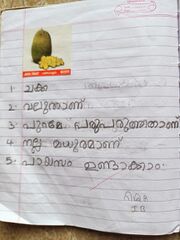 1. ചക്ക
2. വലുതാണ്
3. പുറമേ പരുപരുത്തതാണ്
4. നല്ല മധുരമാണ്
5. പായസം ഉണ്ടാക്കാം.